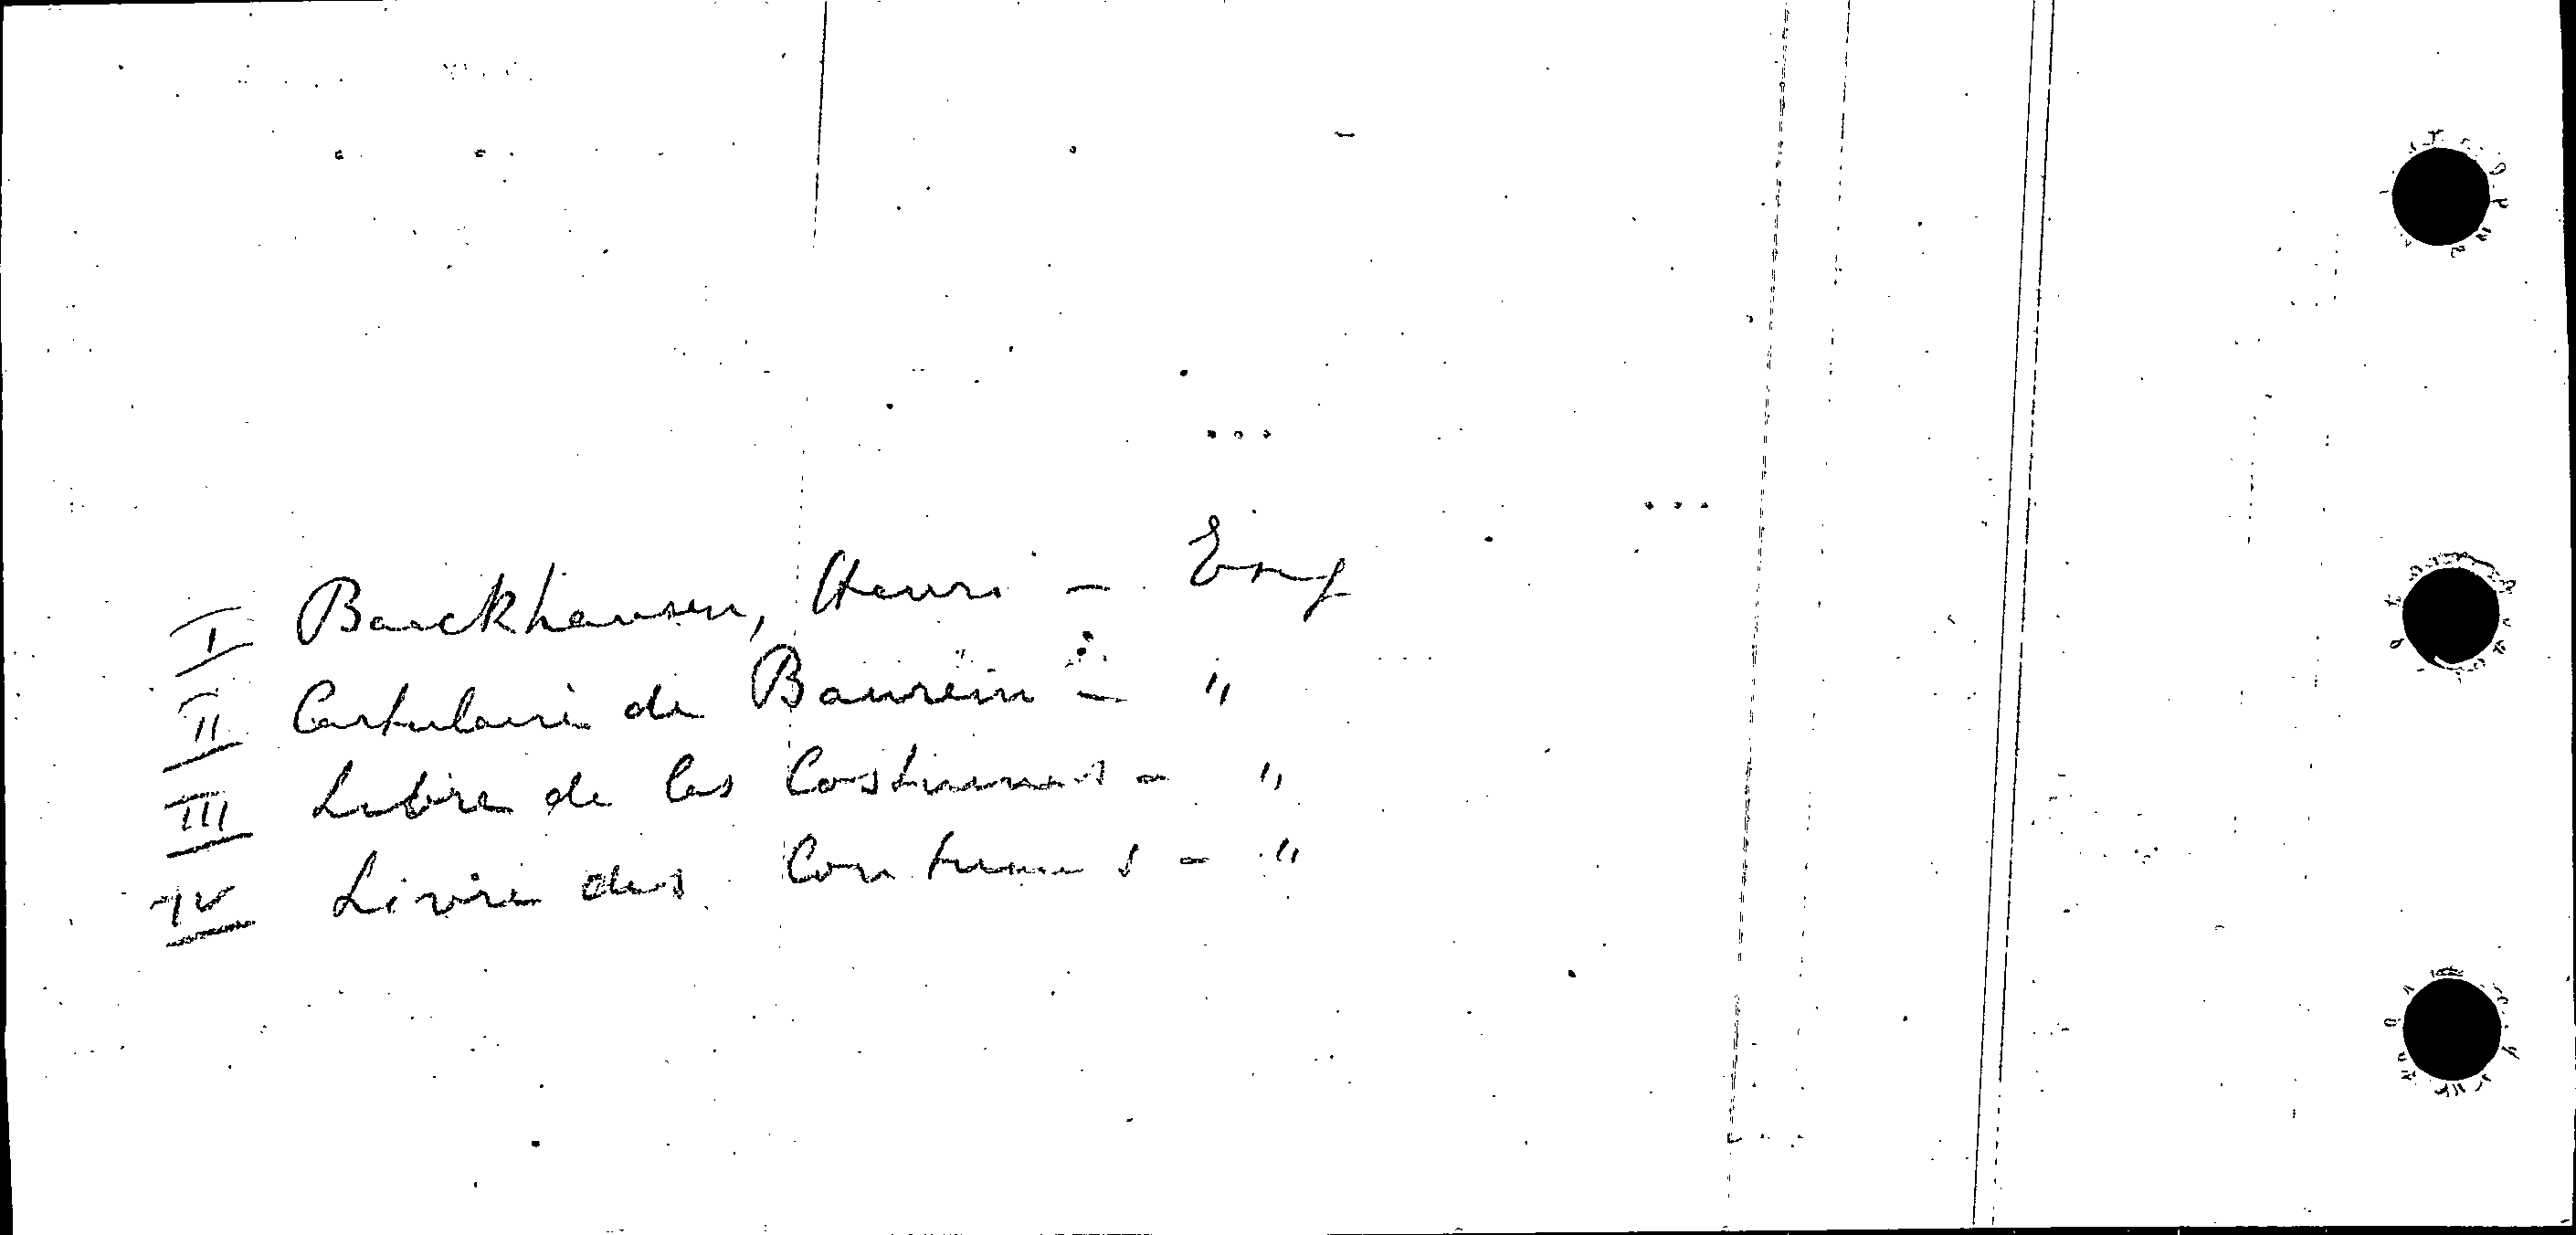 I Barckhausen, Henri - Eng
II Cartulaire de Baurein - "
III Libre de las Costumas - "
IV Livre des Coutumes - "